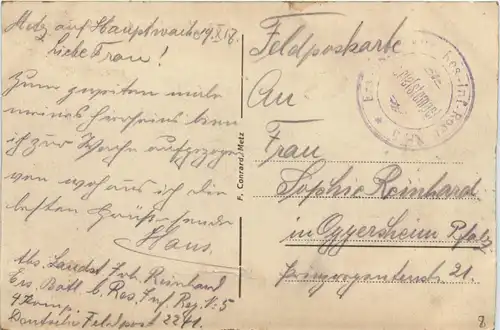 Metz auf Hauptwache 19.X.17.
Liebe Frau!
Zum zweiten male
meines hierseins bin
ich zur Wache aufgezogen
von wo aus ich die
besten Grüße sende
Hans.
Abs. Landst. Inf. Reinhard
Ers. Batl. b. Res. Inf. Reg. No 5
9 Komp.
Deutsche Feldpost 2241.
F. Conrard, Metz
Feldpostkarte
An
Frau
Sophie Reinhard
in Oggersheim Pfalz
21.
Briefstempel
8